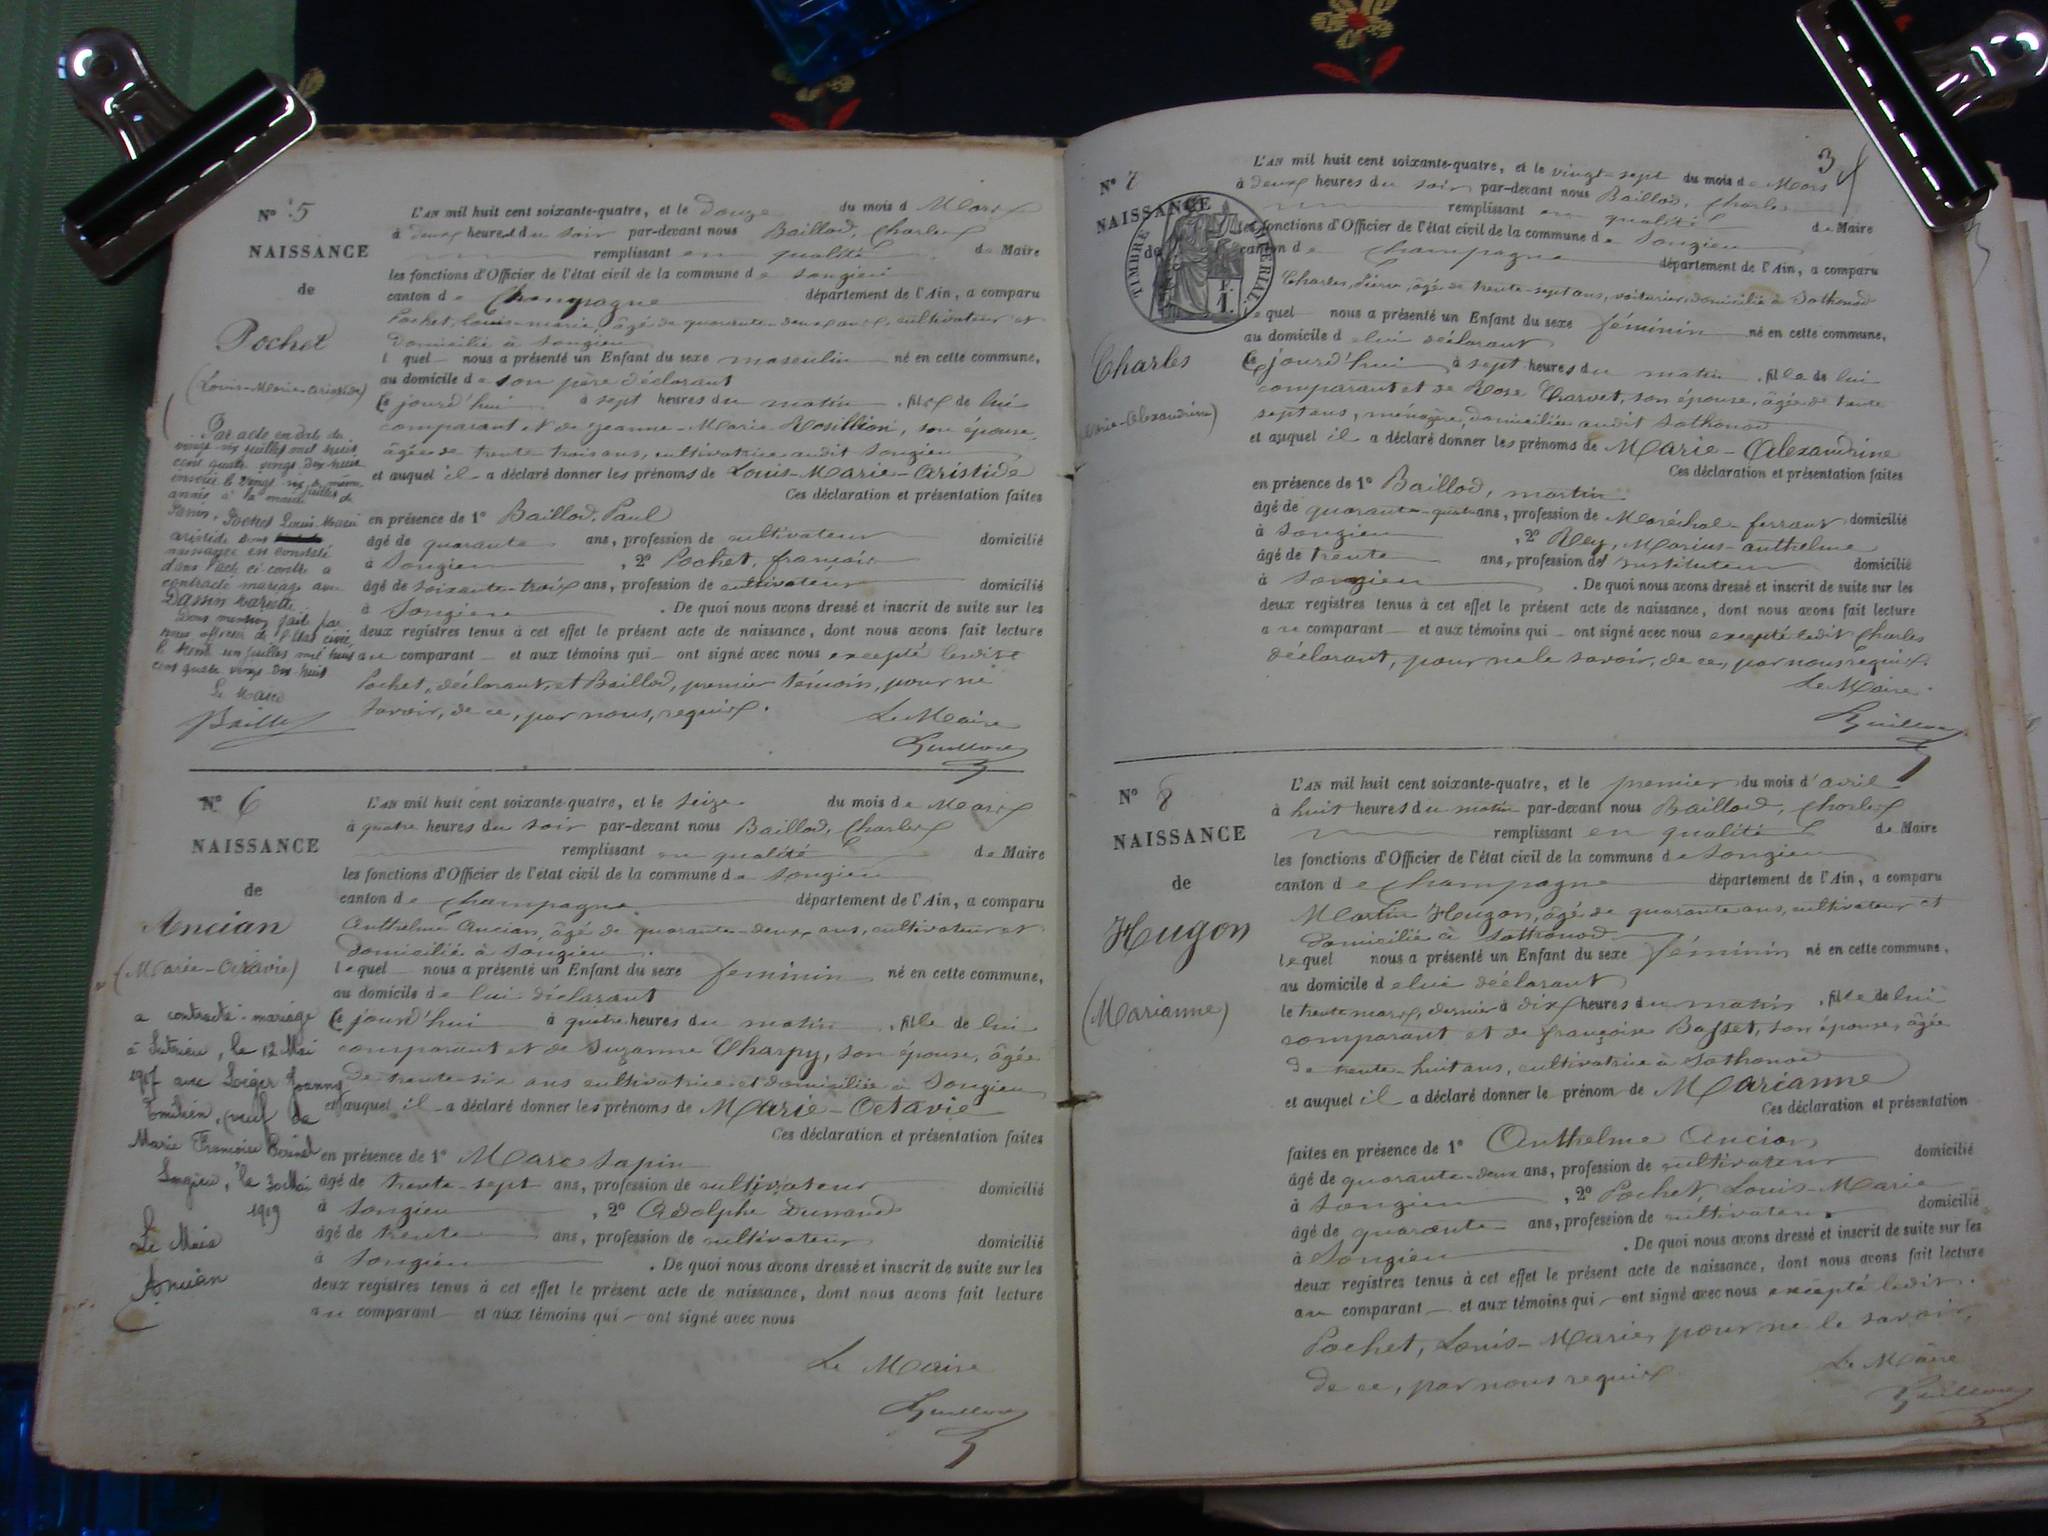 N° 5
NAISSANCE
de
Pochet
(Louis-Marie-Aristide)
Par acte en date du
vingt six juillet mil huit
cent quatre vingt dix huit
envoié le vingt six même
année à la mairie de
Pochet Louis Marie
Aristide dont
naissance est constaté
dans l'acte ci-contre a
contracté mariage avec
Dont mention faite par
nous officier de l'Etat civil
le trente un juillet mil huit
cent quatre vingt dix huit
Le Maire
L'AN mil huit cent soixante-quatre, et le douze du mois d Mars
à deux heures du soir par-devant nous Baillod, Charles
remplissant en qualité de Maire
les fonctions d'Officier de l'état civil de la commune de Songieu
canton de Champagne département de l'Ain, a comparu
Pochet, Louis-marie, âgé de quarante-deux ans, cultivateur et
domicilié à Songieu
lequel nous a présenté un Enfant du sexe masculin né en cette commune,
au domicile de son père déclarant
Ce jourd'hui à sept heures du matin, fils de lui
comparant et de Jeanne-Marie Rosillion, son épouse,
âgée de trente trois ans, cultivatrice audit Songieu
et auquel il a déclaré donner les prénoms de Louis-Marie-Aristide
Ces déclaration et présentation faites
en présence de 1° Baillod, Paul
âgé de quarante ans, profession de cultivateur domicilié
à Songieu, 2° Pochet, françois
âgé de soixante-trois ans, profession de cultivateur domicilié
à Songieu. De quoi nous avons dressé et inscrit de suite sur les
deux registres tenus à cet effet le présent acte de naissance, dont nous avons fait lecture
au comparant et aux témoins qui ont signé avec nous excepté lesdits
Pochet, déclarant, et Baillod, premier témoin, pour ne
savoir, de ce, par nous, requis.
Le Maire
N° 6
NAISSANCE
de
Ancian
(Marie-Octavie)
a contracté mariage
à Sutrieu, le 12 Mai
avec Loeger Joanny
Emilien, veuf de
Marie Françoise
Songieu, le 30 Mai
1919
Le Maire
Ancian
L'AN mil huit cent soixante-quatre, et le seize du mois de Mars
à quatre heures du soir par-devant nous Baillod, Charles
remplissant en qualité de Maire
les fonctions d'Officier de l'état civil de la commune de Songieu
canton de Champagne département de l'Ain, a comparu
Anthelme Ancian, âgé de quarante-deux ans, cultivateur et
domicilié à Songieu.
lequel nous a présenté un Enfant du sexe féminin né en cette commune,
au domicile de lui déclarant
Ce jourd'hui à quatre heures du matin, fille de lui
comparant et de Suzanne Charpy, son épouse, âgée
de trente-six ans cultivatrice et domiciliée à Songieu
et auquel il a déclaré donner les prénoms de Marie-Octavie
Ces déclaration et présentation faites
en présence de 1° Marc Sapin
âgé de trente-sept ans, profession de cultivateur domicilié
à Songieu, 2° Adolphe Dunand
âgé de trente ans, profession de cultivateur domicilié
à Songieu. De quoi nous avons dressé et inscrit de suite sur les
deux registres tenus à cet effet le présent acte de naissance, dont nous avons fait lecture
au comparant et aux témoins qui ont signé avec nous
Le Maire
3
N° 7
NAISSANCE
de
TIMBRE IMPÉRIAL
Charles
(Marie-Alexandrine)
L'AN mil huit cent soixante-quatre, et le vingt-sept du mois de Mars
à deux heures du soir par-devant nous Baillod, Charles
remplissant en qualité de Maire
les fonctions d'Officier de l'état civil de la commune de Songieu
canton de Champagne département de l'Ain, a comparu
Charles, Pierre, âgé de trente-sept ans, voiturier, domicilié à Sothonod
lequel nous a présenté un Enfant du sexe féminin né en cette commune,
au domicile de lui déclarant
Ce jourd'hui à sept heures du matin, fille de lui
comparant et de Rose Charvet, son épouse, âgée de trente
sept ans, ménagère, domiciliée audit Sothonod
et auquel il a déclaré donner les prénoms de Marie-Alexandrine
Ces déclaration et présentation faites
en présence de 1° Baillod, martin
âgé de quarante-quatre ans, profession de Maréchal-ferrant domicilié
à Songieu, 2° Rey, Marius-anthelme
âgé de trente ans, profession d'instituteur domicilié
à Songieu. De quoi nous avons dressé et inscrit de suite sur les
deux registres tenus à cet effet le présent acte de naissance, dont nous avons fait lecture
au comparant et aux témoins qui ont signé avec nous excepté ledit Charles
déclarant, pour ne le savoir, de ce, par nous requis.
Le Maire
N° 8
NAISSANCE
de
Hugon
(Marianne)
L'AN mil huit cent soixante-quatre, et le premier du mois d'avril
à huit heures du matin par-devant nous Baillod, Charles
remplissant en qualité de Maire
les fonctions d'Officier de l'état civil de la commune de Songieu
canton de Champagne département de l'Ain, a comparu
Martin Hugon, âgé de quarante ans, cultivateur et
domicilié à Sothonod
lequel nous a présenté un Enfant du sexe féminin né en cette commune,
au domicile de lui déclarant
le trente mars, dernier à dix heures du matin, fille de lui
comparant et de françoise Basset, son épouse, âgée
de trente-huit ans, cultivatrice à Sothonod
et auquel il a déclaré donner le prénom de Marianne
Ces déclaration et présentation
faites en présence de 1° Anthelme Ancian
âgé de quarante-deux ans, profession de cultivateur domicilié
à Songieu, 2° Pochet, Louis-Marie
âgé de quarante ans, profession de cultivateur domicilié
à Songieu. De quoi nous avons dressé et inscrit de suite sur les
deux registres tenus à cet effet le présent acte de naissance, dont nous avons fait lecture
au comparant et aux témoins qui ont signé avec nous excepté ledit
Pochet, Louis-Marie, pour ne le savoir,
de ce, par nous requis.
Le Maire